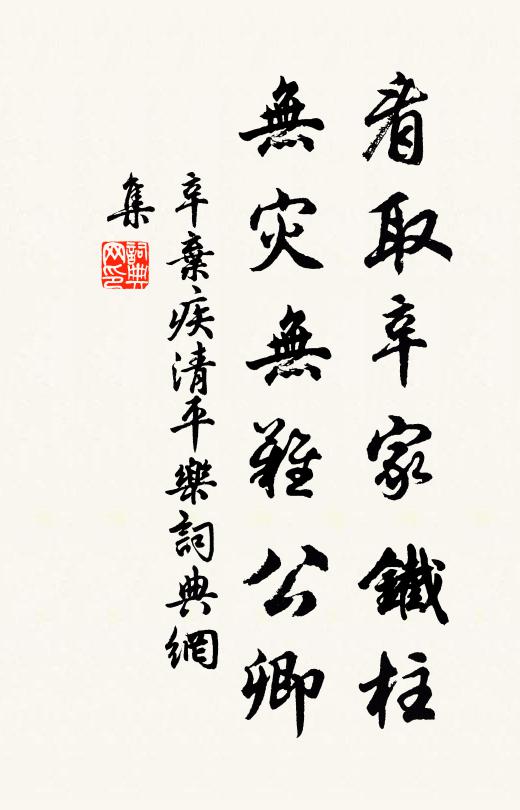 看取辛家鐵柱
無灾無難公卿
辛棄疾清平樂詞典網
集
詞典网印